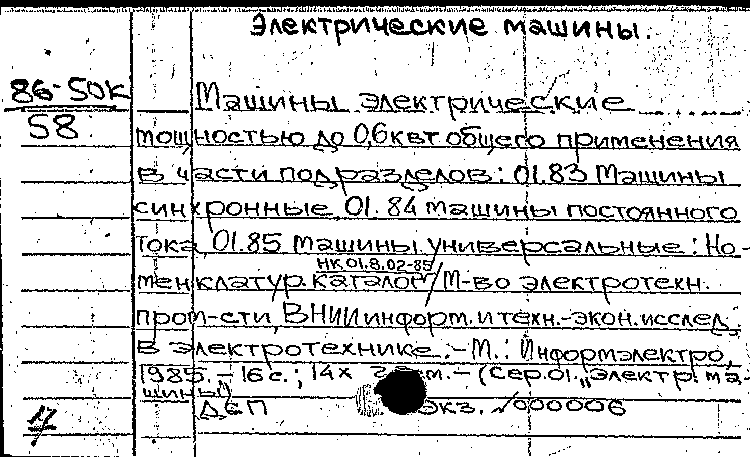 Электрические машины.
86-50К
58
Машины электрические
мощностью до 0,6 квт общего применения
в части подразделов: 01.83 Машины
синхронные, 01.84 машины постоянного
тока, 01.85 машины универсальные: Но-
НК 01.8.02-85
менклатур. каталог/М-во электротехн.
пром-сти, ВНИИ информ. и техн.-экон. исслед.
в электротехнике. - М.: Информэлектро,
1985. - 16 с.; 14х см. - (Сер. 01. „Электр. ма-
шины")
ДСП экз. №000006
17